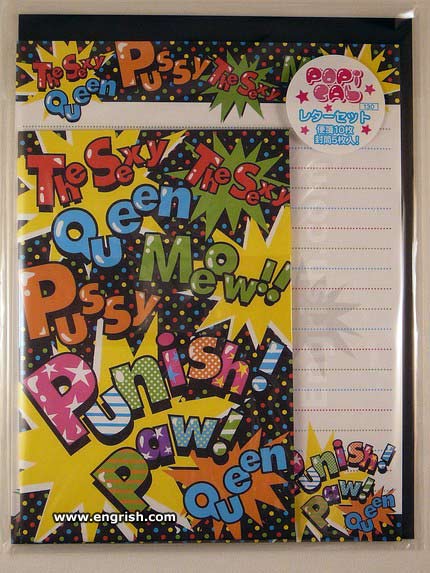 The Sexy
Queen
Pussy
The Sexy
POPiCAL
130
レターセット
便箋10枚
封筒5枚入!
The Sexy
The Sexy
Queen
Meow!!
Pussy
Punish!
Paw!
Queen
Punish!
Paw!
Queen
www.engrish.com